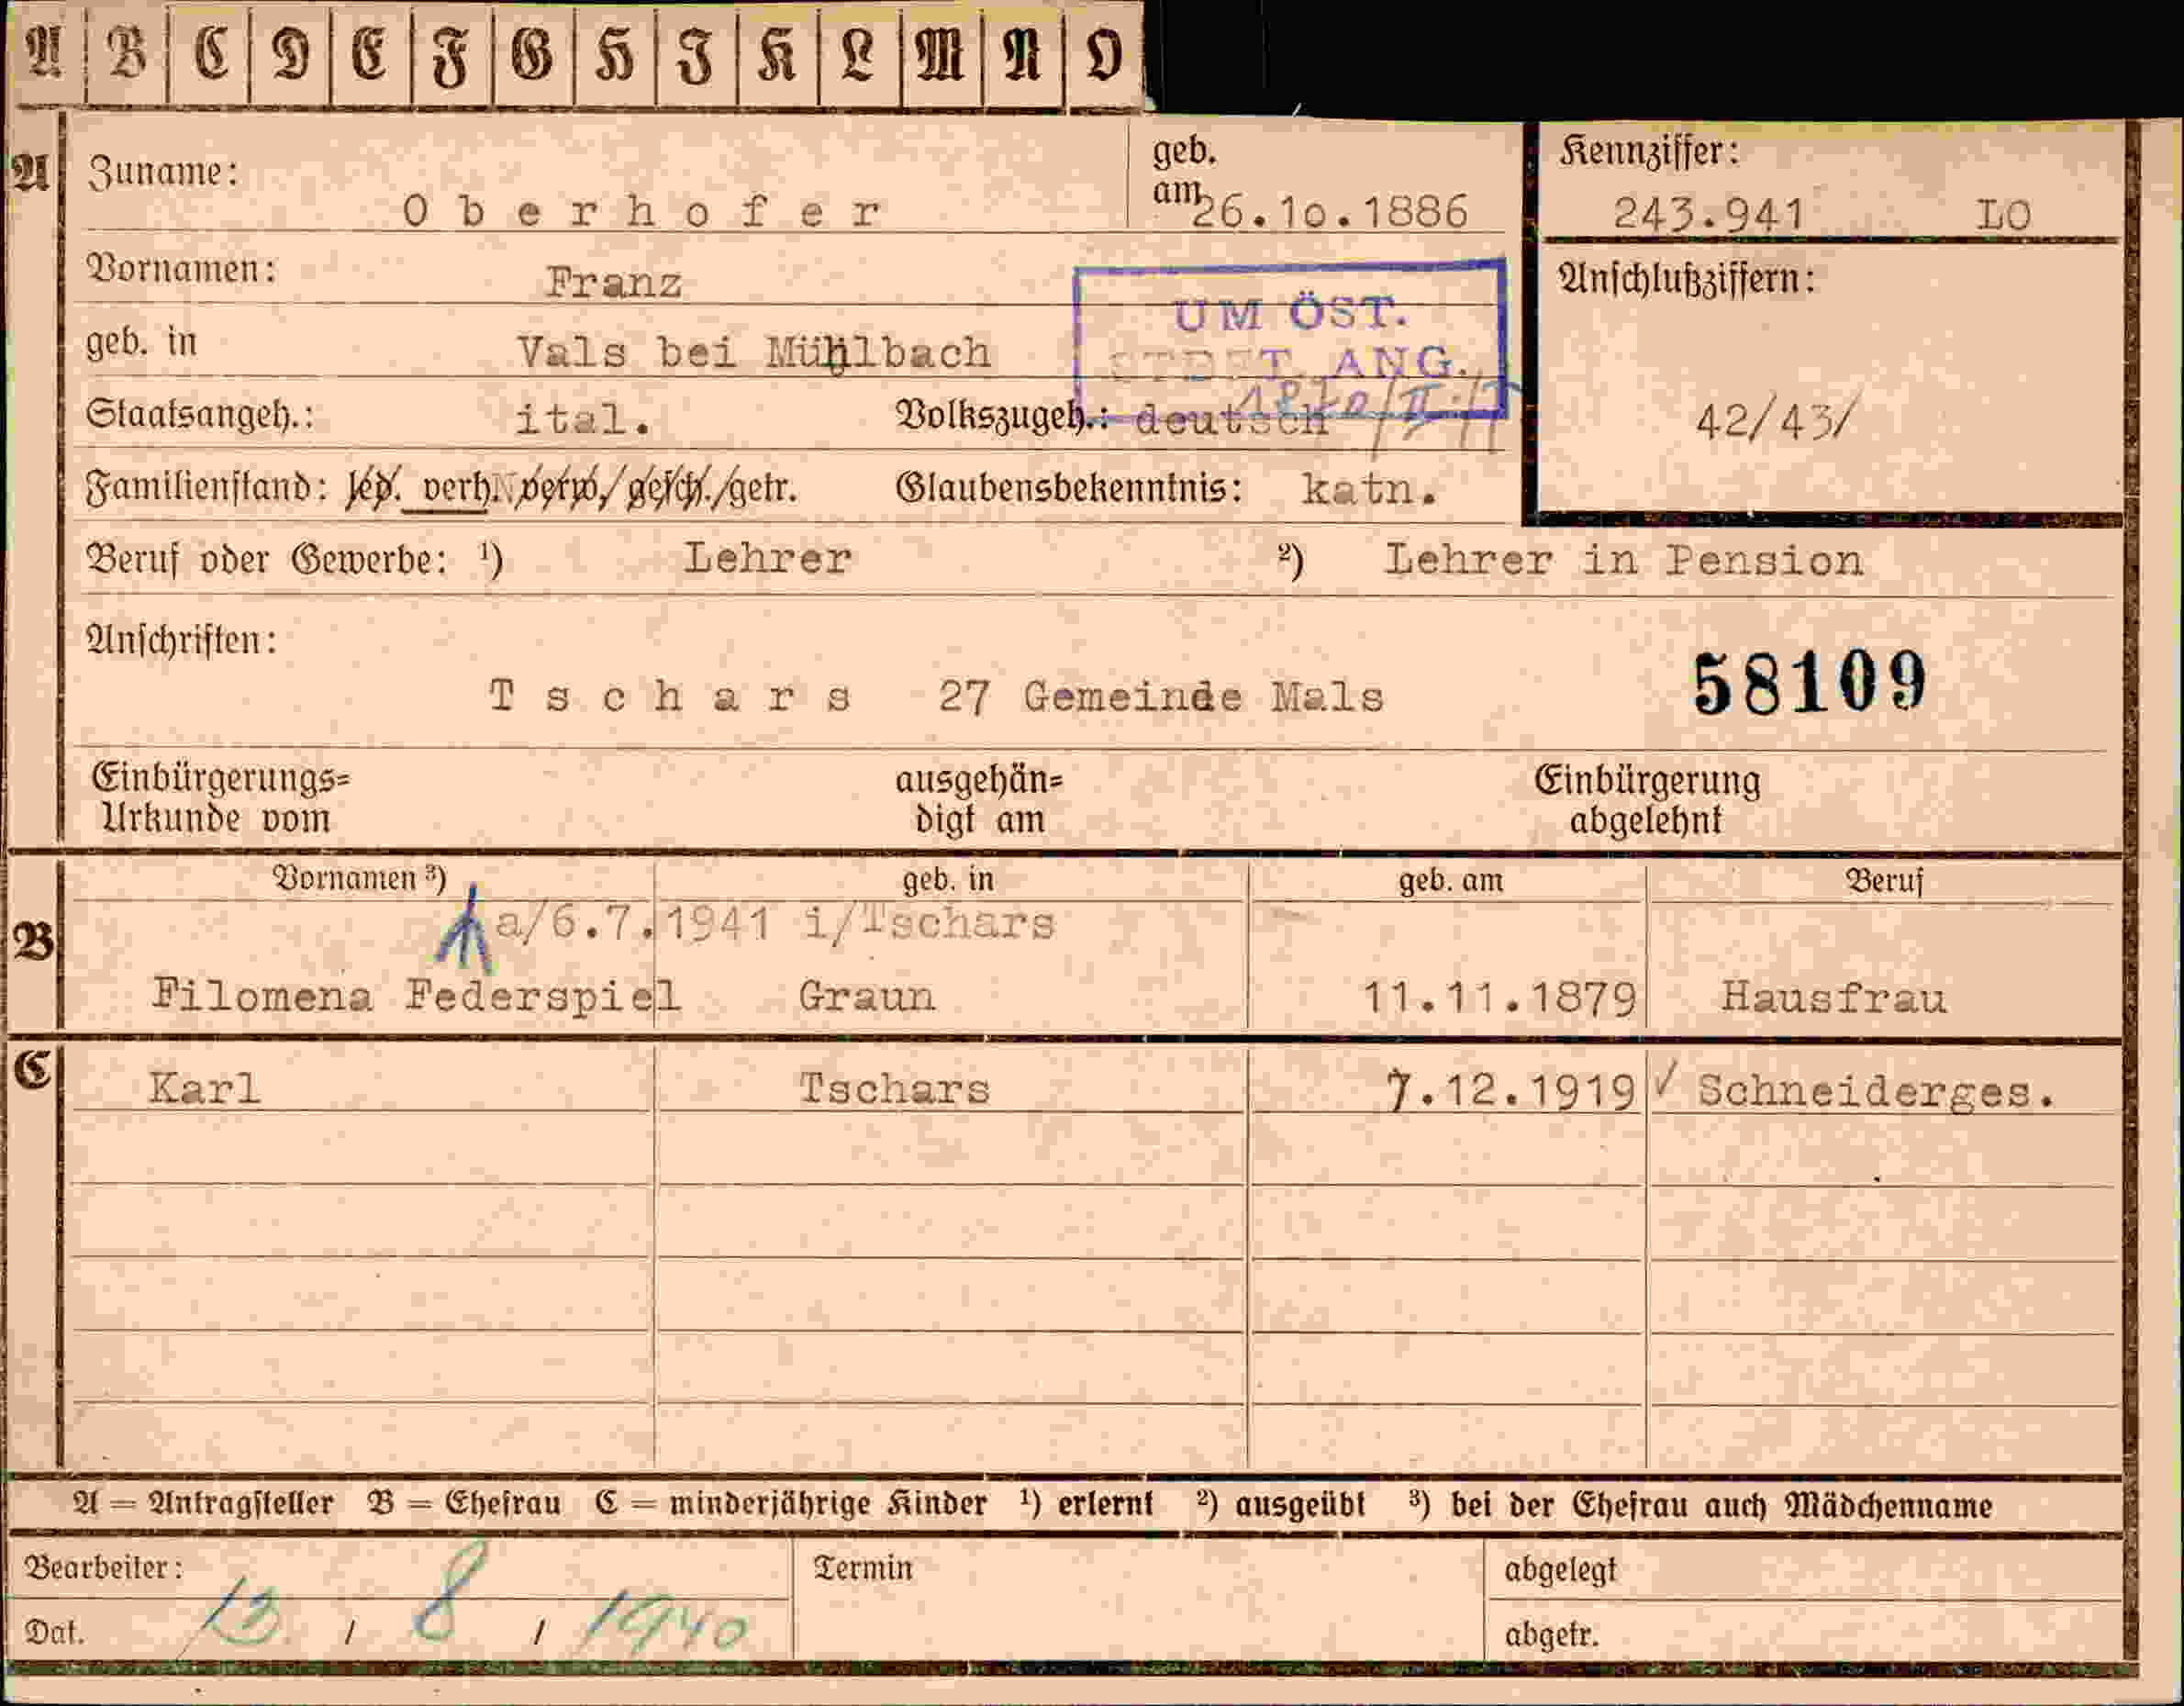 A B C D E F G H I K L M N O
A Zuname: Oberhofer geb. am 26.10.1886
Kennziffer: 243.941 LO
Vornamen: Franz
UM ÖST.
ANG.
Anschlußziffern:
geb. in Vals bei Mühlbach
42/43/
Staatsangeh.: ital. Volkszugeh.: deutsch
Familienstand: led. verh. verw./gesch./getr. Glaubensbekenntnis: katn.
Beruf oder Gewerbe: ¹) Lehrer ²) Lehrer in Pension
Anschriften:
Tschars 27 Gemeinde Mals
58109
Einbürgerungs= Urkunde vom
ausgehän= digt am
Einbürgerung abgelehnt
B Vornamen ³) geb. in geb. am Beruf
a/6.7.1941 i/Tschars
Filomena Federspiel Graun 11.11.1879 Hausfrau
C Karl Tschars 7.12.1919 ✓ Schneiderges.
A = Antragsteller B = Ehefrau C = minderjährige Kinder ¹) erlernt ²) ausgeübt ³) bei der Ehefrau auch Mädchenname
Bearbeiter: Termin abgelegt
Dat. 13 / 8 / 1940 abgetr.